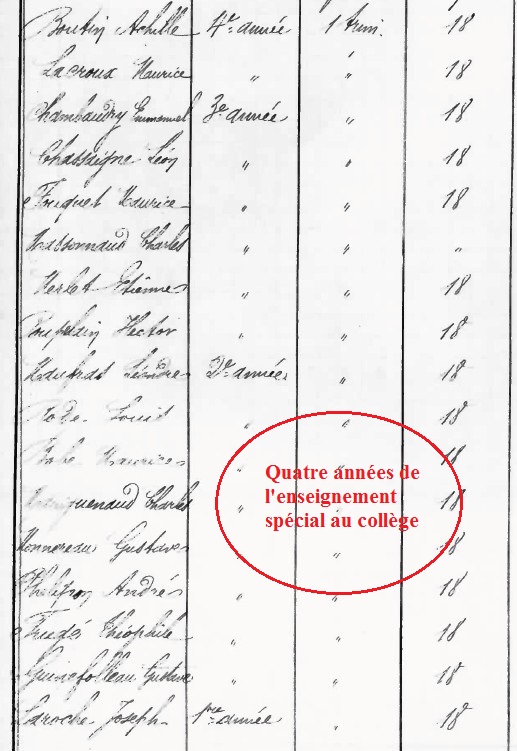 Boutin Achille 4e année 1 trim. 18
Lacroux Maurice " " 18
Chambaudry Emmanuel 3e année " 18
Chassaigne Léon " " 18
Fouquet Maurice " " 18
Massonnaud Charles " " "
Merlet Etienne " " 18
Hector " " 18
Léandre 2e année " 18
Louis " " 18
Maurice " 18
Charles " 18
Monnereau Gustave " 18
André " " 18
Théophile " " 18
Guinefolleau Gustave " " 18
Laroche Joseph 1re année " 18
Quatre années de
l'enseignement
spécial au collège